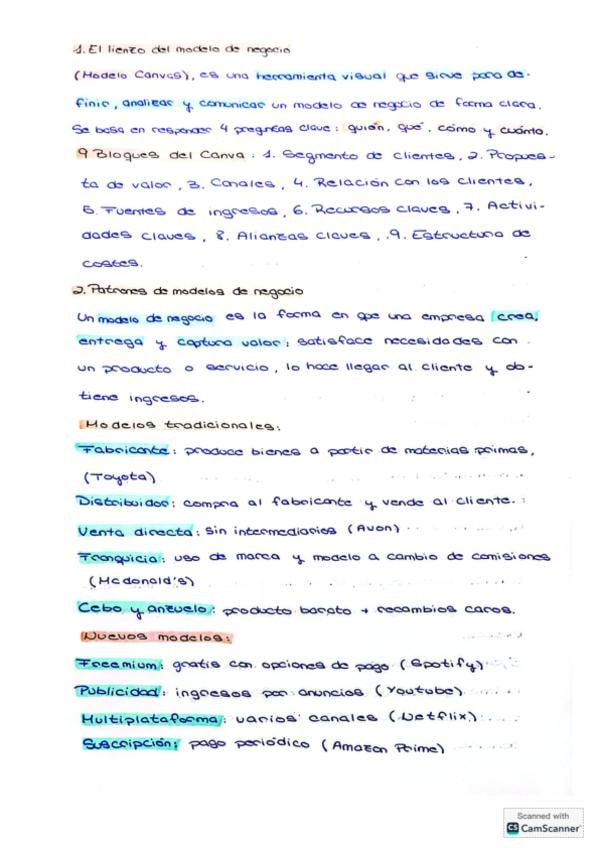 1. El lienzo del modelo de negocio
(Modelo Canvas), es una herramienta visual que sirve para de-
finir, analizar y comunicar un modelo de negocio de forma clara.
Se basa en responder 4 preguntas clave: quién, qué, cómo y cuánto.
9 Bloques del Canva: 1. Segmento de clientes, 2. Propues-
ta de valor, 3. Canales, 4. Relación con los clientes,
5. Fuentes de ingresos, 6. Recursos claves, 7. Activi-
dades claves, 8. Alianzas claves, 9. Estructura de
costes.
2. Patrones de modelos de negocio
Un modelo de negocio es la forma en que una empresa crea,
entrega y captura valor; satisface necesidades con
un producto o servicio, lo hace llegar al cliente y ob-
tiene ingresos.
Modelos tradicionales:
Fabricante: produce bienes a partir de materias primas,
(Toyota)
Distribuidor: compra al fabricante y vende al cliente.
Venta directa: sin intermediarios (Avon)
Franquicia: uso de marca y modelo a cambio de comisiones
(Mcdonald's)
Cebo y anzuelo: producto barato + recambios caros.
Nuevos modelos:
Freemium: gratis con opciones de pago (Spotify)
Publicidad: ingresos por anuncios (Youtube)
Multiplataforma: varios canales (Netflix)
Suscripción: pago periódico (Amazon Prime)
Scanned with
CS CamScanner